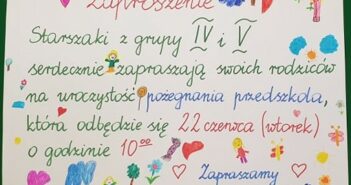 Zaproszenie
Starszaki z grupy IV i V
serdecznie zapraszają swoich rodziców
na uroczystość pożegnania przedszkola,
która odbędzie się 22 czerwca (wtorek)
o godzinie 10⁰⁰
Zapraszamy